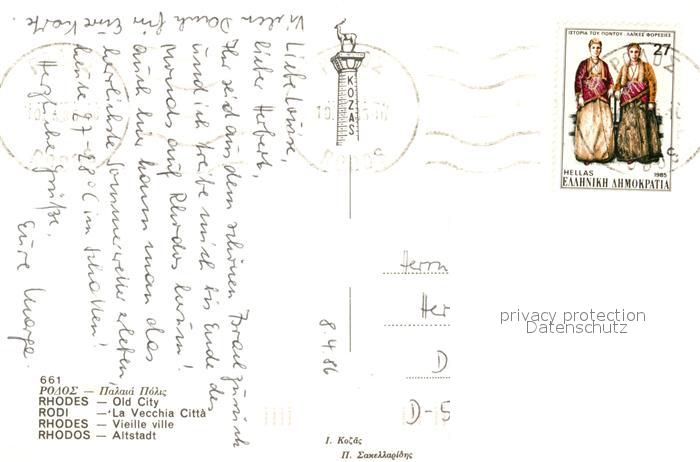 Vielen Dank für Eure Karte.
Liebe Louise,
lieber Herbert,
Ihr seid aus dem schönen Israel zurück
und ich treibe mich bis Ende des
Monats auf Rhodos herum!
Auch hier kann man das
herrlichste Sommerwetter erleben,
heute 27-28°C im Schatten!
Herzliche Grüße,
Eure Marga.
8.4.86
KOZAS
ΙΣΤΟΡΙΑ ΤΟΥ ΠΟΝΤΟΥ - ΛΑΪΚΕΣ ΦΟΡΕΣΙΕΣ
27
HELLAS 1985
ΕΛΛΗΝΙΚΗ ΔΗΜΟΚΡΑΤΙΑ
Herrn
Her
D
D-5
privacy protection
Datenschutz
661
ΡΟΔΟΣ — Παλαιά Πόλις
RHODES — Old City
RODI — La Vecchia Città
RHODES — Vieille ville
RHODOS — Altstadt
Ι. Κοζᾶς
Π. Σακελλαρίδης